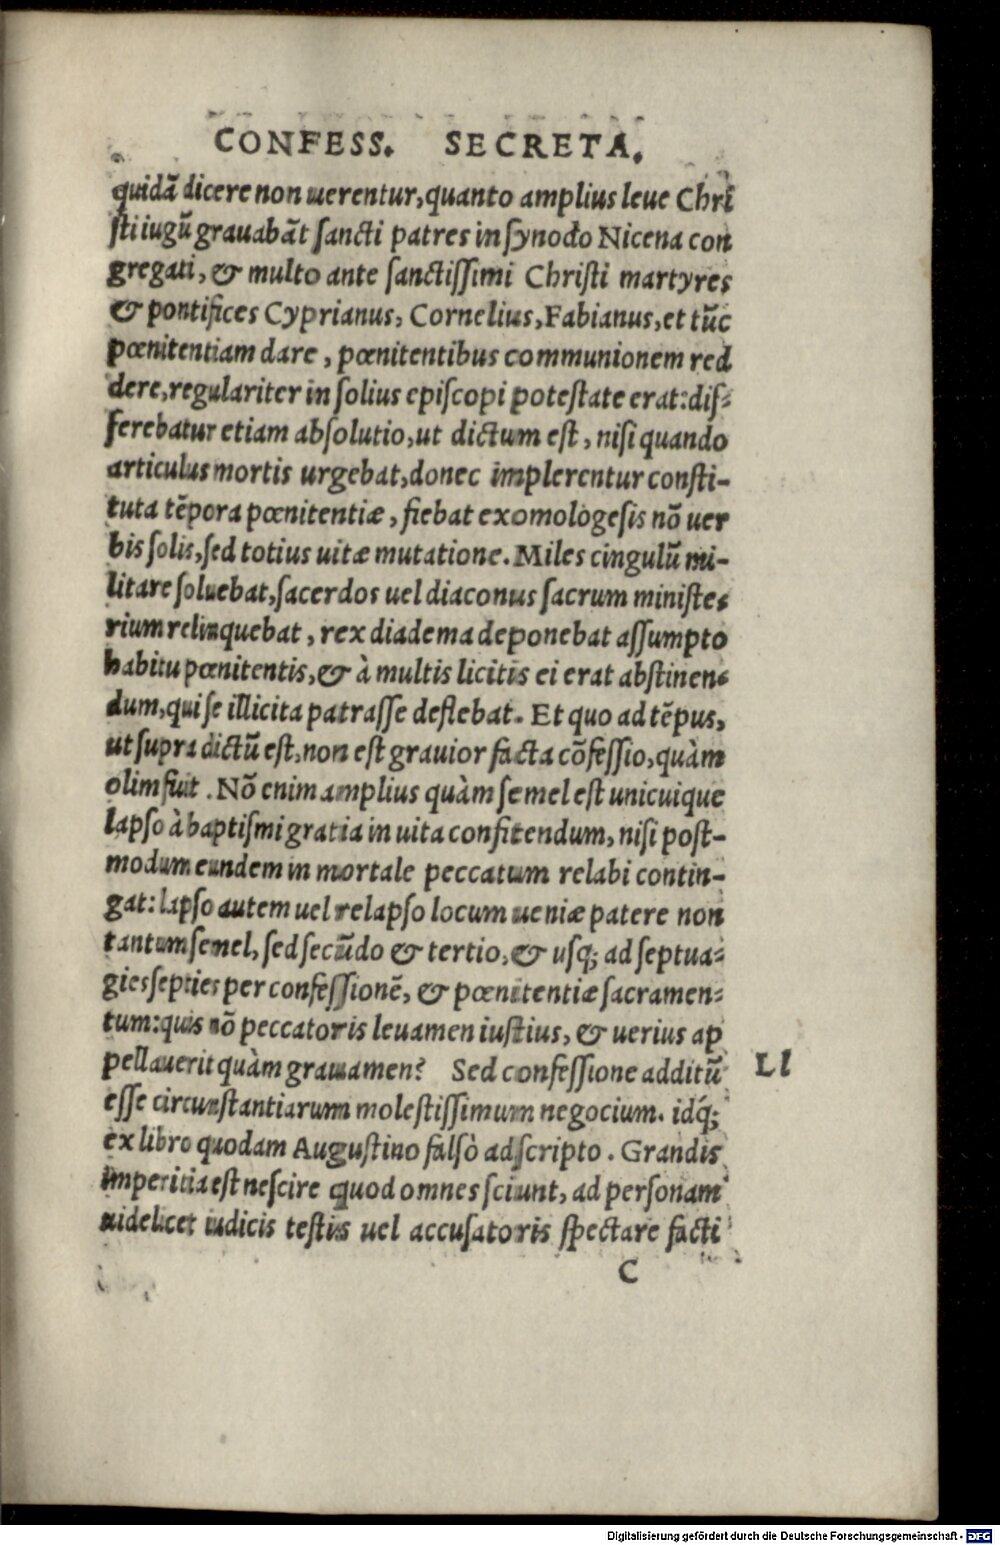 CONFESS. SECRETA.
quidã dicere non uerentur, quanto amplius leue Chri
sti iugũ grauabãt sancti patres in synodo Nicena con
gregati, & multo ante sanctissimi Christi martyres
& pontifices Cyprianus, Cornelius, Fabianus, et tũc
pœnitentiam dare, pœnitentibus communionem red
dere, regulariter in solius episcopi potestate erat: dif-
ferebatur etiam absolutio, ut dictum est, nisi quando
articulus mortis urgebat, donec implerentur consti-
tuta tẽpora pœnitentiæ, fiebat exomologesis nõ uer
bis solis, sed totius uitæ mutatione. Miles cingulũ mi-
litare soluebat, sacerdos uel diaconus sacrum ministe-
rium relinquebat, rex diadema deponebat assumpto
habitu pœnitentis, & à multis licitis ei erat abstinen-
dum, qui se illicita patrasse deflebat. Et quo ad tẽpus,
ut supra dictũ est, non est grauior facta cõfessio, quàm
olim fuit. Nõ enim amplius quàm semel est unicuique
lapso à baptismi gratia in uita confitendum, nisi post-
modum eundem in mortale peccatum relabi contin-
gat: lapso autem uel relapso locum ueniæ patere non
tantum semel, sed secũdo & tertio, & usq; ad septua-
gies septies per confessionẽ, & pœnitentiæ sacramen-
tum: quis nõ peccatoris leuamen iustius, & uerius ap
pellauerit quàm grauamen? Sed confessione additũ
esse circunstantiarum molestissimum negocium. idq́;
ex libro quodam Augustino falsò adscripto. Grandis
imperitia est nescire quod omnes sciunt, ad personam
uidelicet iudicis testis uel accusatoris spectare facti
Ll
C
Digitalisierung gefördert durch die Deutsche Forschungsgemeinschaft - DFG